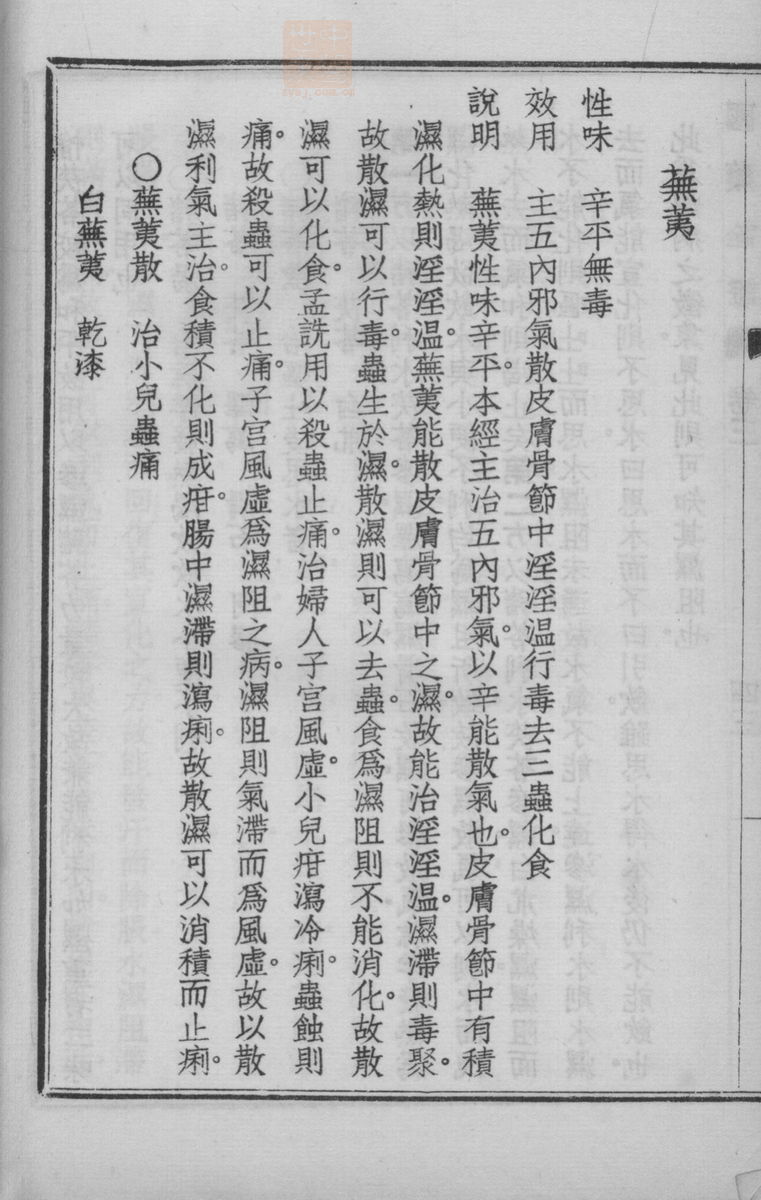 蕪荑
性味　辛平無毒
效用　主五內邪氣散皮膚骨節中淫淫温行毒去三蟲化食
說明　蕪荑性味辛平。本經主治五內邪氣。以辛能散氣也。皮膚骨節中有積
濕化熱則淫淫温。蕪荑能散皮膚骨節中之濕。故能治淫淫温。濕滯則毒聚。
故散濕可以行毒。蟲生於濕。散濕則可以去蟲。食爲濕阻則不能消化。故散
濕可以化食。孟詵用以殺蟲止痛。治婦人子宮風虛。小兒疳瀉冷痢。蟲蝕則
痛。故殺蟲可以止痛。子宮風虛爲濕阻之病。濕阻則氣滯而爲風虛。故以散
濕利氣主治。食積不化則成疳。腸中濕滯則瀉痢。故散濕可以消積而止痢。
○蕪荑散　治小兒蟲痛
白蕪荑　乾漆